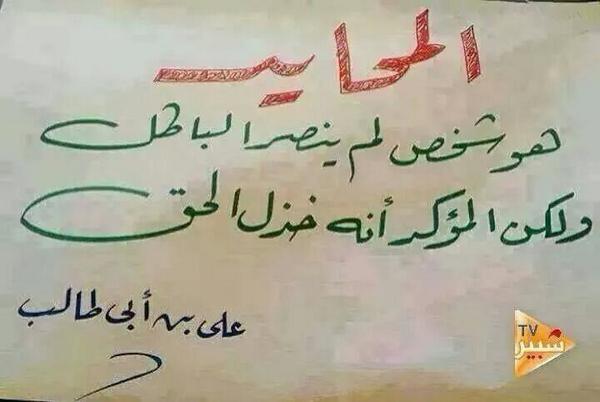 المحايد
هو شخص لم ينصر الباطل
ولكن المؤكد أنه خذل الحق
على بن أبى طالب
TV
شبير